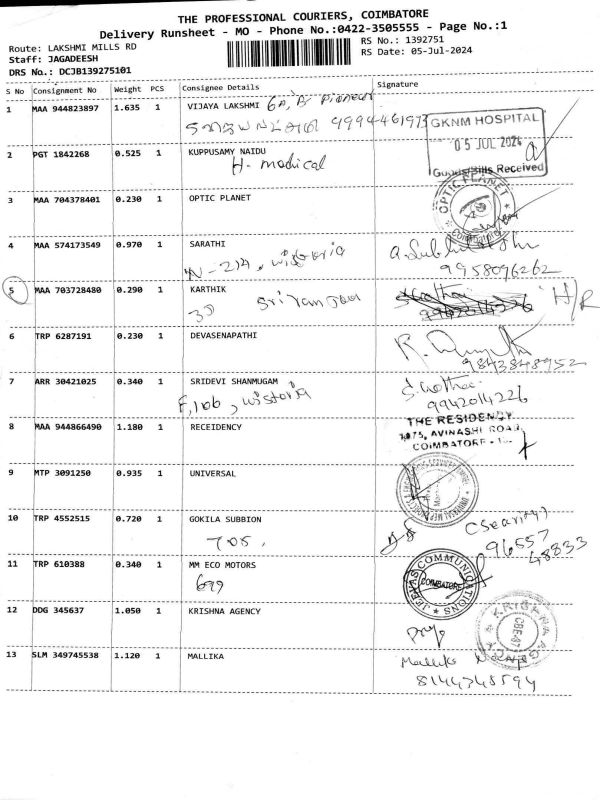 THE PROFESSIONAL COURIERS, COIMBATORE
Delivery Runsheet - MO - Phone No.:0422-3505555 - Page No.:1
Route: LAKSHMI MILLS RD
RS No.: 1392751
Staff: JAGADEESH
RS Date: 05-Jul-2024
DRS No.: DCJB139275101
S No Consignment No Weight PCS Consignee Details Signature
1 MAA 944823897 1.635 1 VIJAYA LAKSHMI
GKNM HOSPITAL
05 JUL 2024
Goods/Bills Received
2 PGT 1842268 0.525 1 KUPPUSAMY NAIDU
H- madical
3 MAA 704378401 0.230 1 OPTIC PLANET
OPTIC PLANET
Coimbatore
4 MAA 574173549 0.970 1 SARATHI
N-214, wistoria
9958096262
5 MAA 703728480 0.290 1 KARTHIK
9942014226 H/R
6 TRP 6287191 0.230 1 DEVASENAPATHI
9843848952
7 ARR 30421025 0.340 1 SRIDEVI SHANMUGAM
F,106, wistoria
9942014226
8 MAA 944866490 1.180 1 RECEIDENCY
THE RESIDENCY
1075, AVINASHI ROAD,
COIMBATORE -
9 MTP 3091250 0.935 1 UNIVERSAL
10 TRP 4552515 0.720 1 GOKILA SUBBION
705,
96557
48833
11 TRP 610388 0.340 1 MM ECO MOTORS
699
JEEVAS COMMUNICATIONS
COIMBATORE
12 DDG 345637 1.050 1 KRISHNA AGENCY
13 SLM 349745538 1.120 1 MALLIKA
Mallika
8144348594